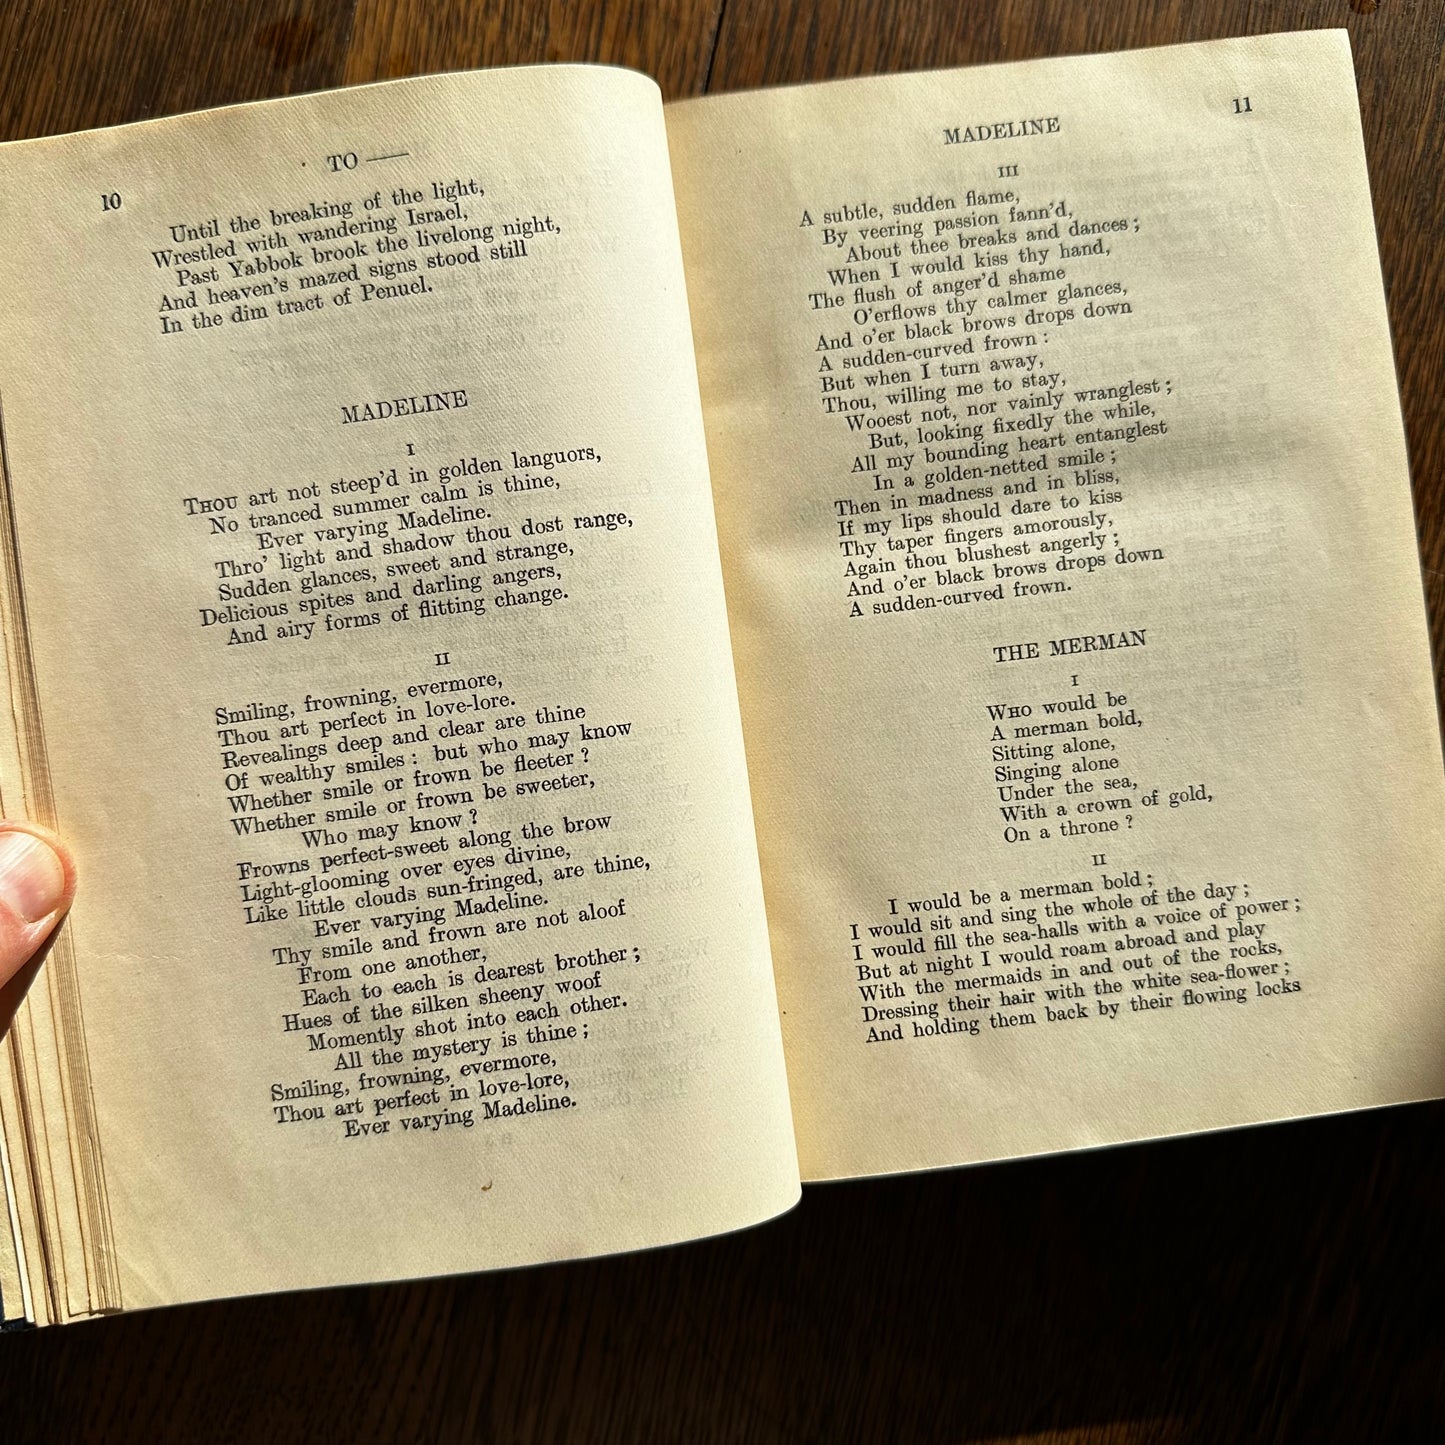 10
TO ——
Until the breaking of the light,
Wrestled with wandering Israel,
Past Yabbok brook the livelong night,
And heaven's mazed signs stood still
In the dim tract of Penuel.
MADELINE
I
THOU art not steep'd in golden languors,
No tranced summer calm is thine,
Ever varying Madeline.
Thro' light and shadow thou dost range,
Sudden glances, sweet and strange,
Delicious spites and darling angers,
And airy forms of flitting change.
II
Smiling, frowning, evermore,
Thou art perfect in love-lore.
Revealings deep and clear are thine
Of wealthy smiles : but who may know
Whether smile or frown be fleeter ?
Whether smile or frown be sweeter,
Who may know ?
Frowns perfect-sweet along the brow
Light-glooming over eyes divine,
Like little clouds sun-fringed, are thine,
Ever varying Madeline.
Thy smile and frown are not aloof
From one another,
Each to each is dearest brother ;
Hues of the silken sheeny woof
Momently shot into each other.
All the mystery is thine ;
Smiling, frowning, evermore,
Thou art perfect in love-lore,
Ever varying Madeline.
MADELINE
11
III
A subtle, sudden flame,
By veering passion fann'd,
About thee breaks and dances ;
When I would kiss thy hand,
The flush of anger'd shame
O'erflows thy calmer glances,
And o'er black brows drops down
A sudden-curved frown :
But when I turn away,
Thou, willing me to stay,
Wooest not, nor vainly wranglest ;
But, looking fixedly the while,
All my bounding heart entanglest
In a golden-netted smile ;
Then in madness and in bliss,
If my lips should dare to kiss
Thy taper fingers amorously,
Again thou blushest angerly ;
And o'er black brows drops down
A sudden-curved frown.
THE MERMAN
I
WHO would be
A merman bold,
Sitting alone,
Singing alone
Under the sea,
With a crown of gold,
On a throne ?
II
I would be a merman bold ;
I would sit and sing the whole of the day ;
I would fill the sea-halls with a voice of power ;
But at night I would roam abroad and play
With the mermaids in and out of the rocks,
Dressing their hair with the white sea-flower ;
And holding them back by their flowing locks